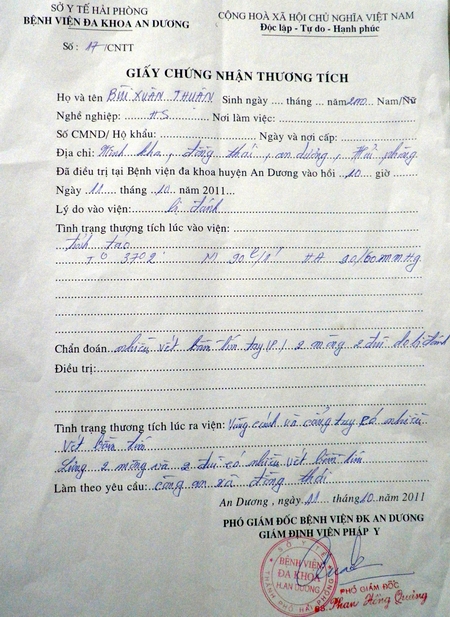 SỞ Y TẾ HẢI PHÒNG
BỆNH VIỆN ĐA KHOA AN DƯƠNG
Số: 17/CNTT
CỘNG HOÀ XÃ HỘI CHỦ NGHĨA VIỆT NAM
Độc lập - Tự do - Hạnh phúc
GIẤY CHỨNG NHẬN THƯƠNG TÍCH
Họ và tên BÙI XUÂN THUẦN Sinh ngày .... tháng ... năm 2000 Nam/Nữ
Nghề nghiệp: HS Nơi làm việc:
Số CMND/ Hộ khẩu: Ngày và nơi cấp:
Địa chỉ: Minh kha, đồng thái, an dương, Hải phòng
Đã điều trị tại Bệnh viện đa khoa huyện An Dương vào hồi ..10... giờ
Ngày 11 tháng 10 năm 2011...
Lý do vào viện: bị đánh
Tình trạng thương tích lúc vào viện:
tỉnh táo
T° 37°2 M 90 l/1' HA 90/60 mmHg
Chẩn đoán nhiều vết bầm tím tay (P) 2 mông 2 đùi do bị đánh
Điều trị:
Tình trạng thương tích lúc ra viện: Vùng cánh và cẳng tay có nhiều
vết bầm tím
Lưng 2 mông và 2 đùi có nhiều vết bầm tím
Làm theo yêu cầu: công an xã đồng thái
An Dương, ngày 11 tháng 10 năm 2011
PHÓ GIÁM ĐỐC BỆNH VIỆN ĐK AN DƯƠNG
GIÁM ĐỊNH VIÊN PHÁP Y
SỞ Y TẾ
BỆNH VIỆN
ĐA KHOA
H.AN DƯƠNG
THÀNH PHỐ HẢI PHÒNG
PHÓ GIÁM ĐỐC
BS. Phan Hồng Quảng